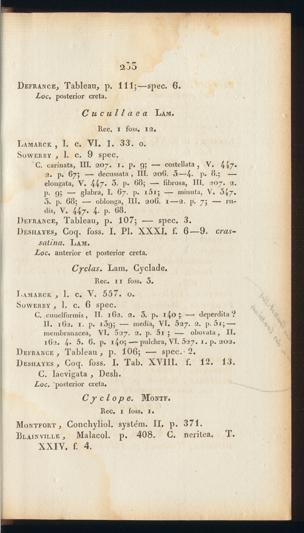 235
DEFRANCE, Tableau, p. 111;—spec. 6.
Loc. posterior creta.
Cucullaea LAM.
Rec. 1 foss. 12.
LAMARCK, l. c. VI. I. 33. o.
SOWERBY, l. c. 9 spec.
C. carinata, III. 207. 1. p. 9; — costellata, V. 447.
2. p. 67; — decussata, III. 206. 3—4. p. 8.; —
elongata, V. 447. 3. p. 68; — fibrosa, III. 207. 2.
p. 9; — glabra, I. 67. p. 151; — minuta, V. 347.
3. p. 68; — oblonga, III. 206. 1—2. p. 7; — ru-
dis, V. 447. 4. p. 68.
DEFRANCE, Tableau, p. 107; — spec. 3.
DESHAYES, Coq. foss. I. Pl. XXXI. f. 6—9. cras-
satina. LAM.
Loc. anterior et posterior creta.
Cyclas. Lam. Cyclade.
Rec. 11 foss. 5.
LAMARCK, l. c. V. 557. o.
SOWERBY, l. c. 6 spec.
C. cuneiformis, II. 162. 2. 3. p. 140; — deperdita?
II. 162. 1. p. 139; — media, VI. 527. 2. p. 51; —
membranacea, VI. 527. 2. p. 51; — obovata, II.
162. 4. 5. 6. p. 140; — pulchra, VI. 527. 1. p. 202.
DEFRANCE, Tableau, p. 106; — spec. 2.
DESHAYES, Coq. foss. I. Tab. XVIII. f. 12. 13.
C. laevigata, Desh.
Loc. posterior creta.
Cyclope. MONTF.
Rec. 1 foss. 1.
MONTFORT, Conchyliol. systém. II. p. 371.
BLAINVILLE, Malacol. p. 408. C. neritea. T.
XXIV. f. 4.